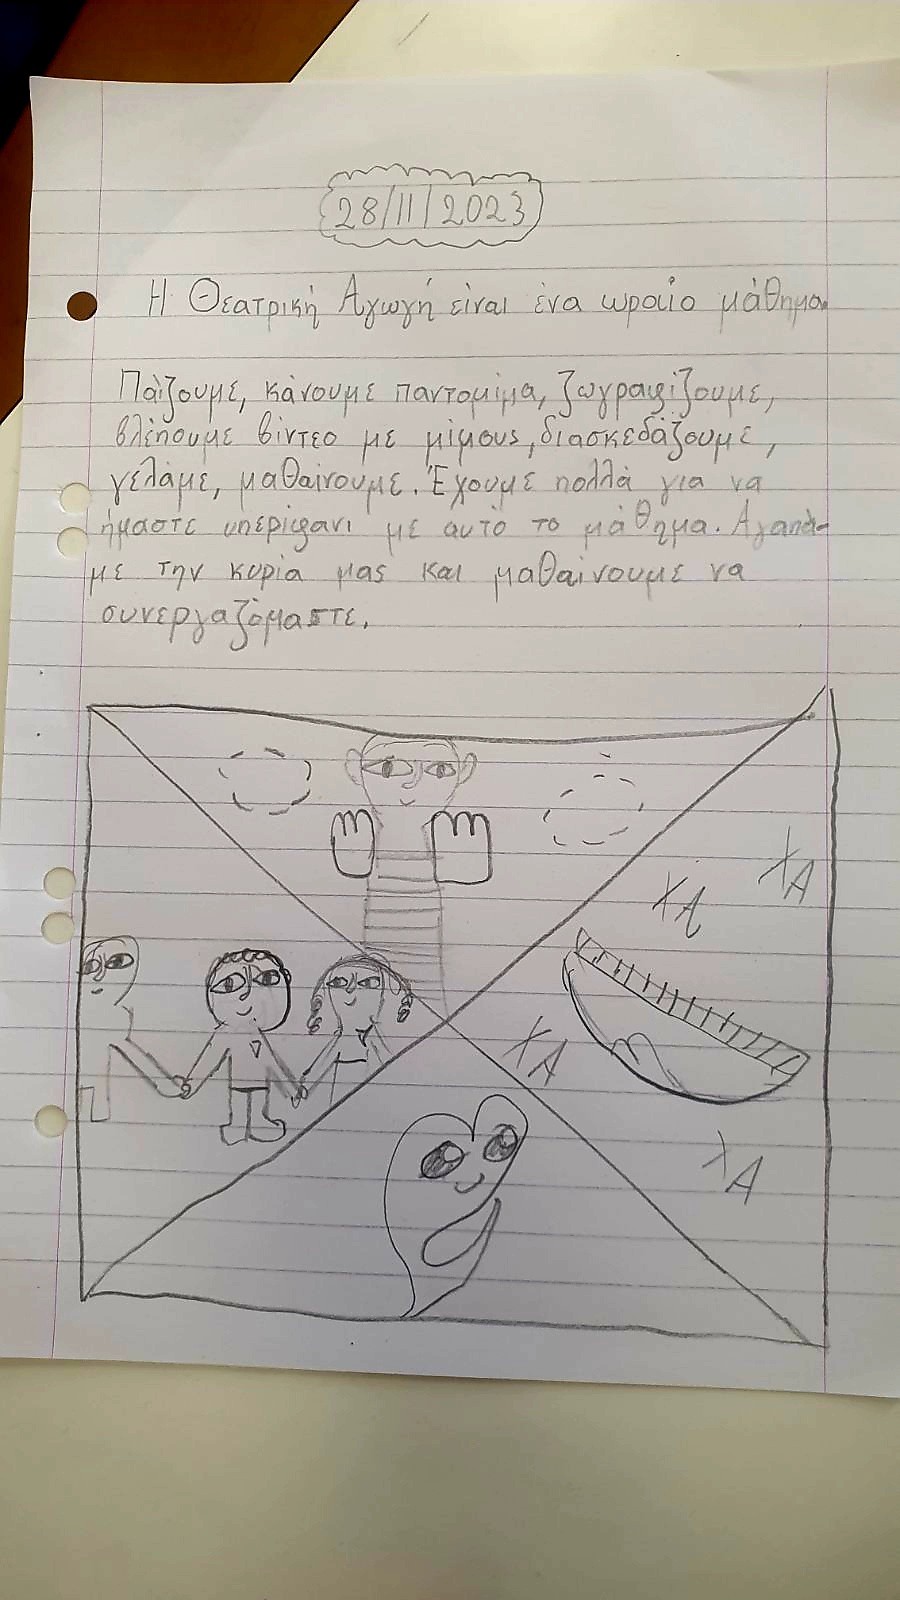 28/11/2023
Η Θεατρική Αγωγή είναι ένα ωραίο μάθημα.
Παίζουμε, κάνουμε παντομίμα, ζωγραφίζουμε,
βλέπουμε βίντεο με μίμους, διασκεδάζουμε,
γελάμε, μαθαίνουμε. Έχουμε πολλά για να
ήμαστε υπερίφανι με αυτό το μάθημα. Αγαπά-
με την κυρία μας και μαθαίνουμε να
συνεργαζόμαστε.
ΧΑ
ΧΑ
ΧΑ
ΧΑ